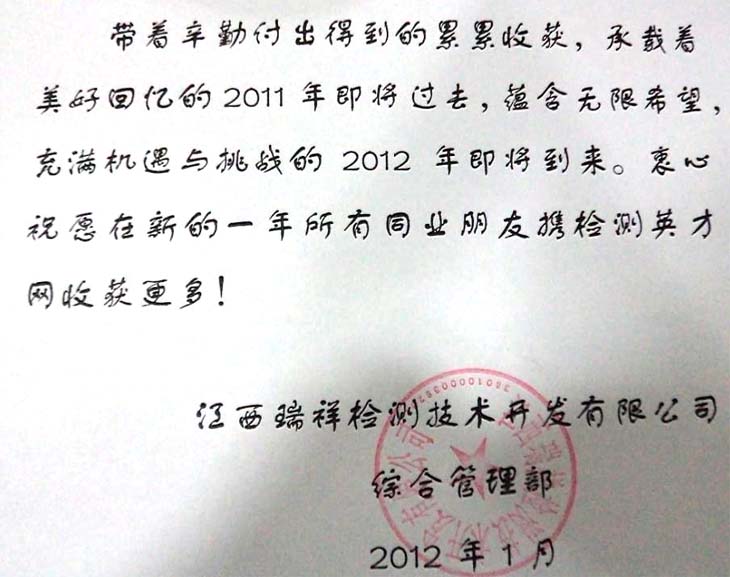 带着辛勤付出得到的累累收获，承载着
美好回忆的 2011 年即将过去，蕴含无限希望，
充满机遇与挑战的 2012 年即将到来。衷心
祝愿在新的一年所有同业朋友携检测英才
网收获更多！
江西瑞祥检测技术开发有限公司
综合管理部
2012 年 1 月